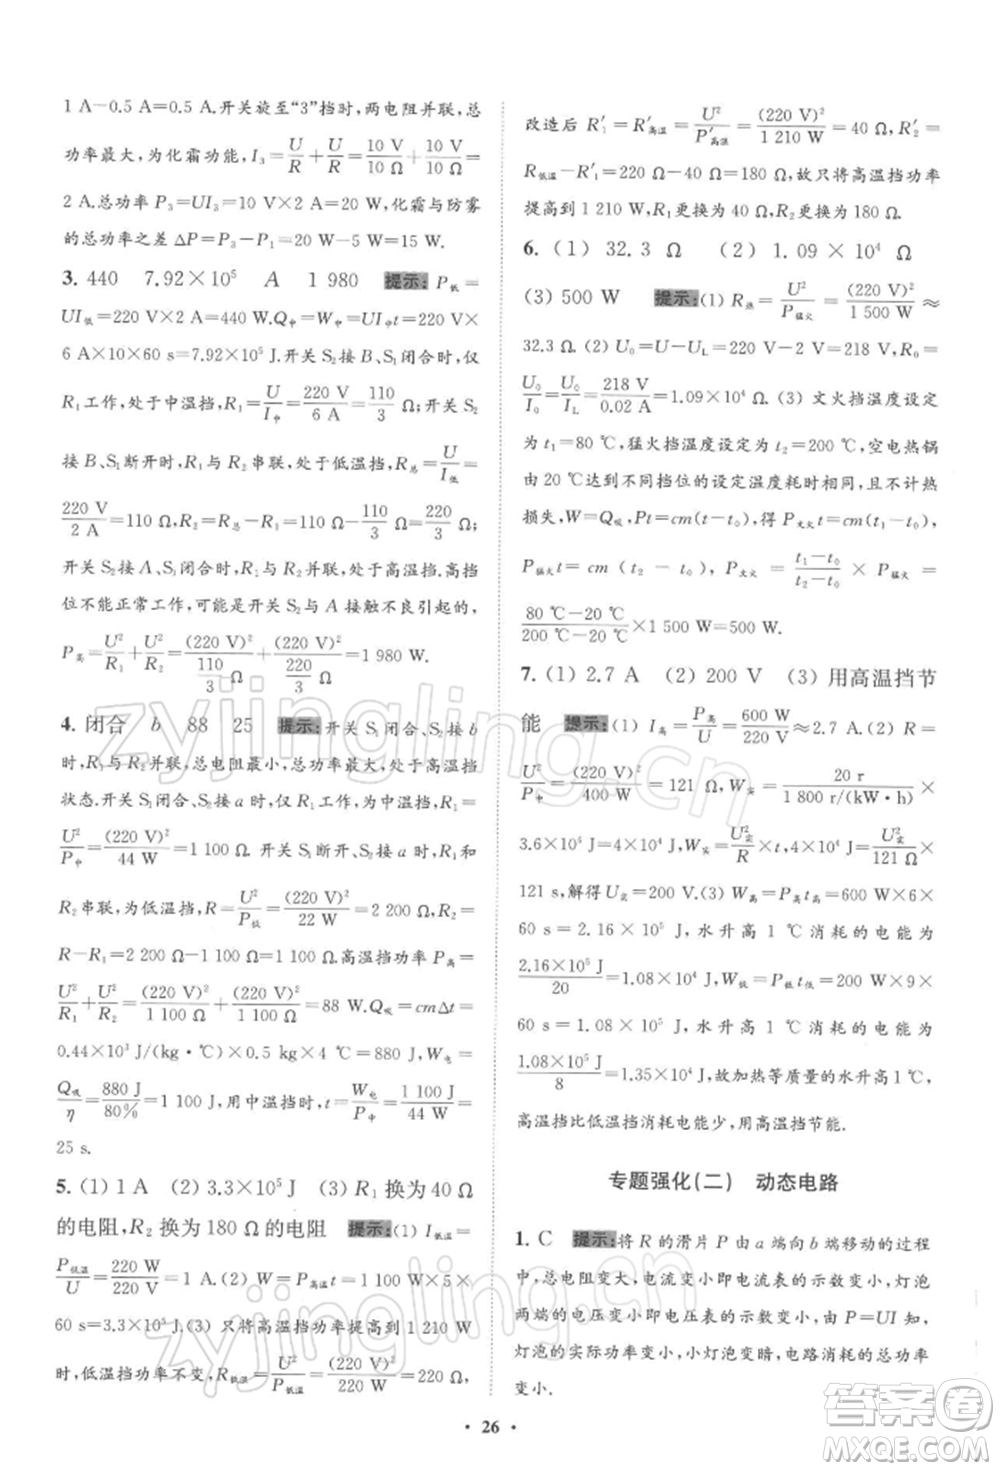 1 A−0.5 A=0.5 A.开关旋至“3”挡时,两电阻并联,总
功率最大,为化霜功能,I₃=U/R+U/R=10 V/10 Ω+10 V/10 Ω=
2 A.总功率 P₃=UI₃=10 V×2 A=20 W,化霜与防雾
的总功率之差 ΔP=P₃−P₁=20 W−5 W=15 W.
3. 440 7.92×10⁵ A 1 980 提示:P低=
UI低=220 V×2 A=440 W.Q中=W中=UI中t=220 V×
6 A×10×60 s=7.92×10⁵ J.开关 S₂接 A、S₁闭合时,仅
R₁工作,处于中温挡,R₁=U/I中=220 V/6 A=110/3 Ω;开关 S₂
接 B、S₁断开时,R₁与 R₂串联,处于低温挡,R总=U/I低=
220 V/2 A=110 Ω,R₂=R总−R₁=110 Ω−110/3 Ω=220/3 Ω;
开关 S₂接 A、S₁闭合时,R₁与 R₂并联,处于高温挡.高挡
位不能正常工作,可能是开关 S₂与 A 接触不良引起的,
P高=U²/R₁+U²/R₂=(220 V)²/(110/3 Ω)+(220 V)²/(220/3 Ω)=1 980 W.
4. 闭合 b 88 25 提示:开关 S₁闭合、S₂接 b
时,R₁与R₂并联,总电阻最小,总功率最大,处于高温挡
状态.开关 S₁闭合、S₂接 a 时,仅 R₁工作,为中温挡,R₁=
U²/P中=(220 V)²/44 W=1 100 Ω.开关 S₁断开、S₂接 a 时,R₁和
R₂串联,为低温挡,R=U²/P低=(220 V)²/22 W=2 200 Ω,R₂=
R−R₁=2 200 Ω−1 100 Ω=1 100 Ω.高温挡功率 P高=
U²/R₁+U²/R₂=(220 V)²/1 100 Ω+(220 V)²/1 100 Ω=88 W.Q吸=cmΔt=
0.44×10³ J/(kg·℃)×0.5 kg×4 ℃=880 J,W电=
Q吸/η=880 J/80%=1 100 J,用中温挡时,t=W电/P中=1 100 J/44 W=
25 s.
5. (1) 1 A (2) 3.3×10⁵ J (3) R₁换为 40 Ω
的电阻,R₂换为 180 Ω的电阻 提示:(1) I低温=
P低温/U=220 W/220 V=1 A.(2) W高温=P高温t=1 100 W×5×
60 s=3.3×10⁵ J.(3) 只将高温挡功率提高到 1 210 W
时,低温挡功率不变,R低温=U²/P低温=(220 V)²/220 W=220 Ω,
改造后 R′₁=R′高温=U²/P′高温=(220 V)²/1 210 W=40 Ω,R′₂=
R低温−R′₁=220 Ω−40 Ω=180 Ω,故只将高温挡功率
提高到 1 210 W,R₁更换为 40 Ω,R₂更换为 180 Ω.
6. (1) 32.3 Ω (2) 1.09×10⁴ Ω
(3) 500 W 提示:(1) R热=U²/P猛火=(220 V)²/1 500 W≈
32.3 Ω.(2) U₀=U−U_L=220 V−2 V=218 V,R₀=
U₀/I₀=U₀/I_L=218 V/0.02 A=1.09×10⁴ Ω.(3) 文火挡温度设定
为 t₁=80 ℃,猛火挡温度设定为 t₂=200 ℃,空电热锅
由 20 ℃达到不同挡位的设定温度耗时相同,且不计热
损失,W=Q吸,Pt=cm(t−t₀),得 P文火t=cm(t₁−t₀),
P猛火t=cm(t₂−t₀),P文火=(t₁−t₀)/(t₂−t₀)×P猛火=
(80 ℃−20 ℃)/(200 ℃−20 ℃)×1 500 W=500 W.
7. (1) 2.7 A (2) 200 V (3) 用高温挡节
能 提示:(1) I高=P高/U=600 W/220 V≈2.7 A.(2) R=
U²/P中=(220 V)²/400 W=121 Ω,W实=20 r/1 800 r/(kW·h)×
3.6×10⁶ J=4×10⁴ J,W实=U实²/R×t,4×10⁴ J=U实²/121 Ω×
121 s,解得 U实=200 V.(3) W高=P高t高=600 W×6×
60 s=2.16×10⁵ J,水升高 1 ℃消耗的电能为
2.16×10⁵ J/20=1.08×10⁴ J,W低=P低t低=200 W×9×
60 s=1.08×10⁵ J,水升高 1 ℃消耗的电能为
1.08×10⁵ J/8=1.35×10⁴ J,故加热等质量的水升高 1 ℃,
高温挡比低温挡消耗电能少,用高温挡节能.
专题强化(二) 动态电路
1. C 提示:将 R 的滑片 P 由 a 端向 b 端移动的过程
中,总电阻变大,电流变小即电流表的示数变小,灯泡
两端的电压变小即电压表的示数变小,由 P=UI 知,
灯泡的实际功率变小,小灯泡变暗,电路消耗的总功率
变小.
· 26 ·
zyjingling.cn
zyjingling.cn
答案圈
MXQE.COM